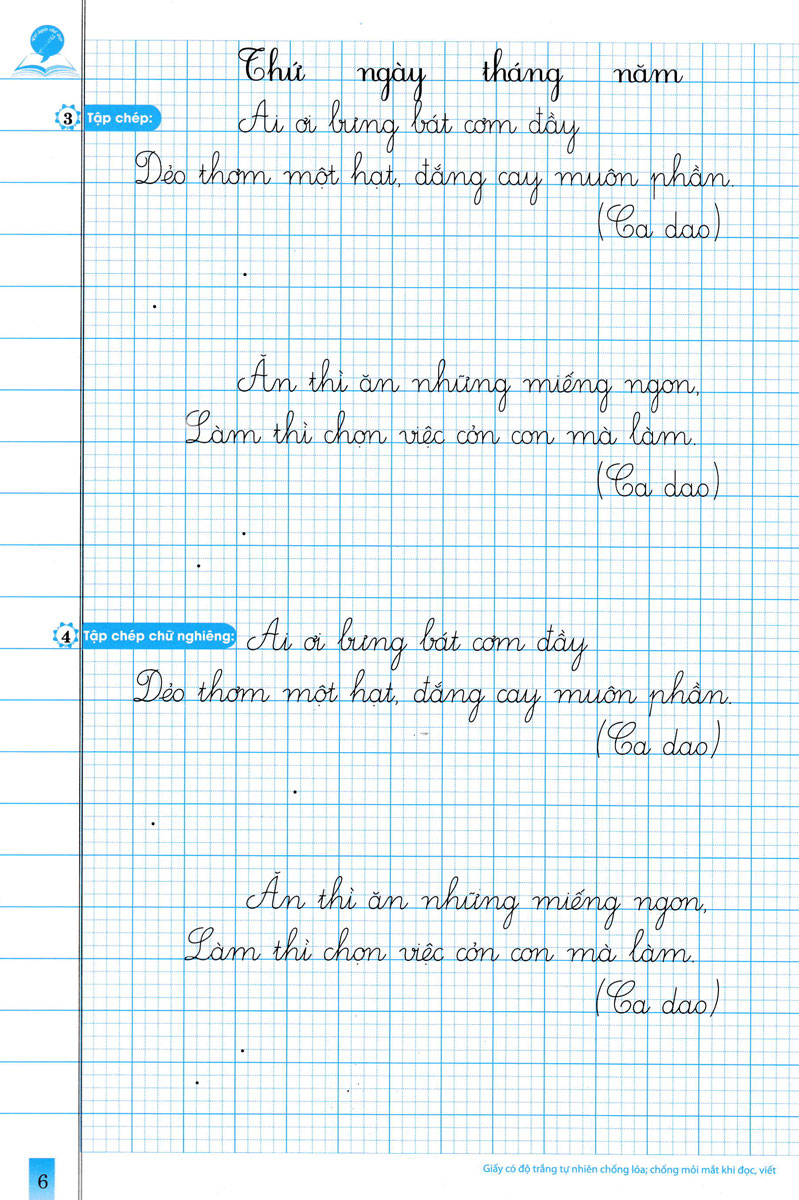 Thứ ngày tháng năm
3 Tập chép:
Ai ơi bưng bát cơm đầy
Dẻo thơm một hạt, đắng cay muôn phần.
(Ca dao)
Ăn thì ăn những miếng ngon,
Làm thì chọn việc cỏn con mà làm.
(Ca dao)
4 Tập chép chữ nghiêng:
Ai ơi bưng bát cơm đầy
Dẻo thơm một hạt, đắng cay muôn phần.
(Ca dao)
Ăn thì ăn những miếng ngon,
Làm thì chọn việc cỏn con mà làm.
(Ca dao)
Giấy có độ trắng tự nhiên chống lóa; chống mỏi mắt khi đọc, viết
6